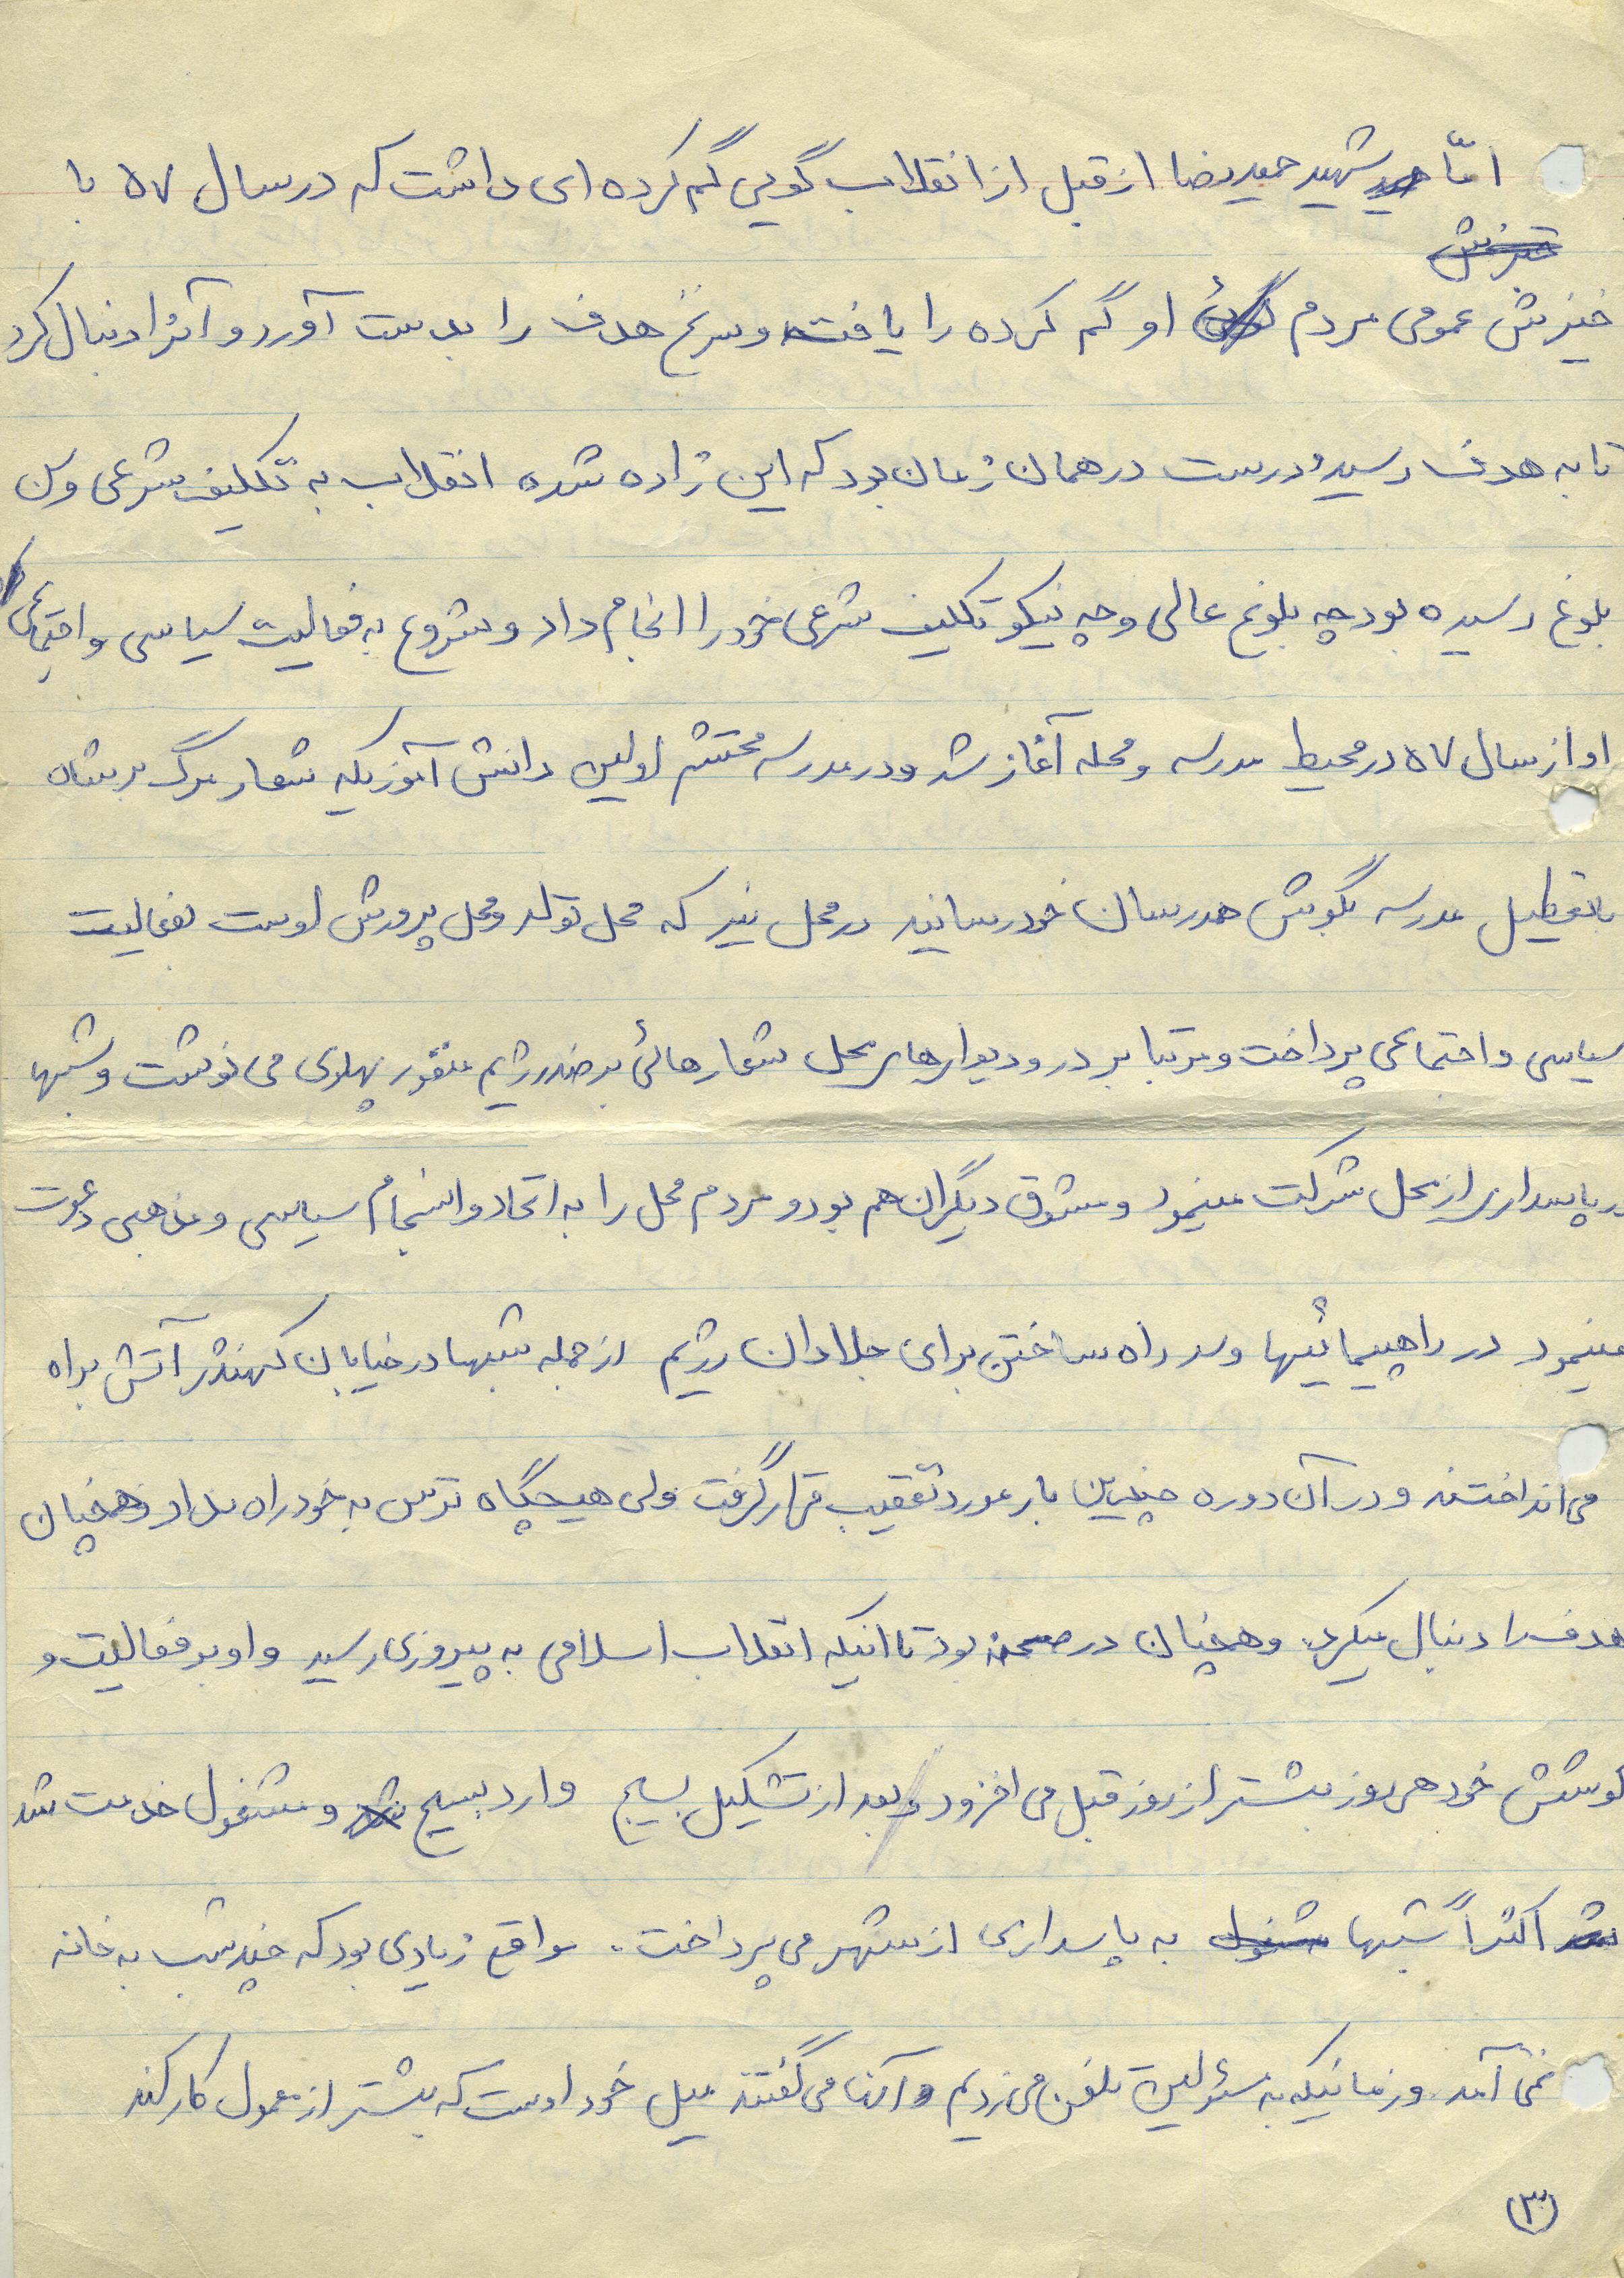 امّا شهید حمیدرضا از قبل از انقلاب گویی گم کرده ای داشت که در سال ۵۷ با
خیزش عمومی مردم او گم کرده را یافت و سرنخ هدف را بدست آورد و آنرا دنبال کرد
تا به هدف رسید و درست در همان زمان بود که این زاده شده انقلاب به تکلیف شرعی و سن
بلوغ رسیده بود چه بلوغ عالی و چه نیکو تکلیف شرعی خود را انجام داد و شروع به فعالیت سیاسی و اجتماعی
او از سال ۵۷ در محیط مدرسه و محله آغاز شد و در مدرسه محتشم اولین دانش آموزیکه شعار مرگ بر شاه
با تعطیل مدرسه بگوش همدرسان خود رسانید در محل نیز که محل تولد و محل پرورش اوست بفعالیت
سیاسی و اجتماعی پرداخت و مرتبا بر در و دیوارهای محل شعارهائی بر ضد رژیم منفور پهلوی می نوشت و شبها
در پاسداری از محل شرکت مینمود و مشوق دیگران هم بود و مردم محل را به اتحاد و انسجام سیاسی و مذهبی دعوت
مینمود در راهپیمائیها و سد راه ساختن برای جلادان رژیم از جمله شبها در خیابان کهندژ آتش براه
می انداختند و در آن دوره چندین بار مورد تعقیب قرار گرفت ولی هیچگاه ترس به خود راه نداد و همچنان
هدف را دنبال میکرد. و همچنان در صحنه بود تا اینکه انقلاب اسلامی به پیروزی رسید و او بر فعالیت و
کوشش خود هر روز بیشتر از روز قبل می افزود و بعد از تشکیل بسیج وارد بسیج و مشغول خدمت شد
اکثراً شبها به پاسداری از شهر می پرداخت. مواقع زیادی بود که چند شب به خانه
نمی آمد و زمانیکه به مسئولین تلفن می زدیم و آنها می گفتند میل خود اوست که بیشتر از معمول کار کند
(۳)